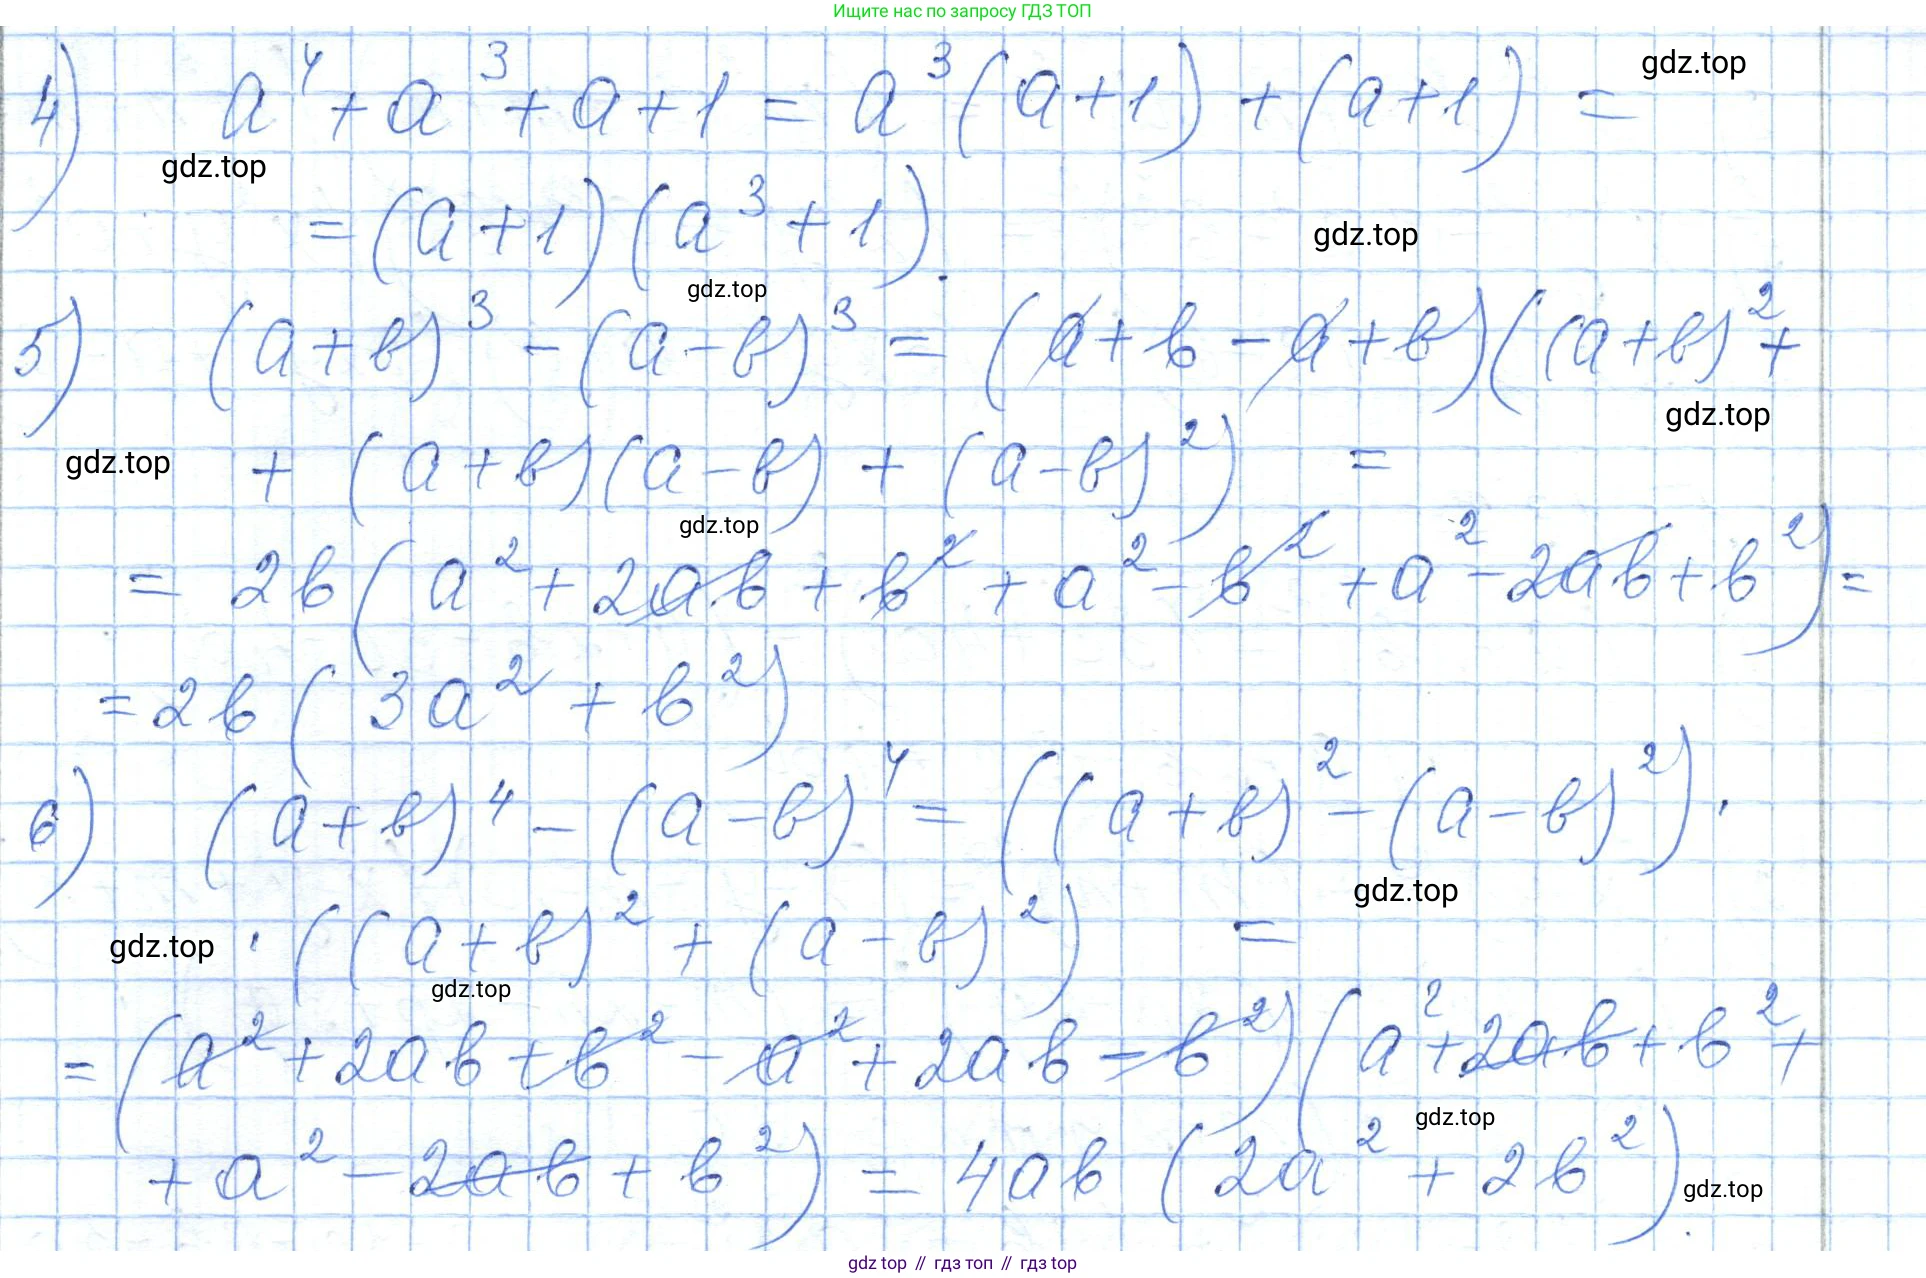 Ищите нас по запросу ГДЗ ТОП
4) a⁴ + a³ + a + 1 = a³ (a + 1) + (a + 1) =
gdz.top
gdz.top
= (a + 1) (a³ + 1).
gdz.top
gdz.top
5) (a + b)³ − (a − b)³ = (a + b − a + b) ((a + b)² +
gdz.top
gdz.top
+ (a + b) (a − b) + (a − b)²) =
gdz.top
= 2b (a² + 2ab + b² + a² − b² + a² − 2ab + b²) =
= 2b (3a² + b²)
6) (a + b)⁴ − (a − b)⁴ = ((a + b)² − (a − b)²) ·
gdz.top
gdz.top
· ((a + b)² + (a − b)²) =
gdz.top
= (a² + 2ab + b² − a² + 2ab − b²) (a² + 2ab + b² +
gdz.top
+ a² − 2ab + b²) = 4ab (2a² + 2b²).
gdz.top
gdz top // гдз топ // гдз top